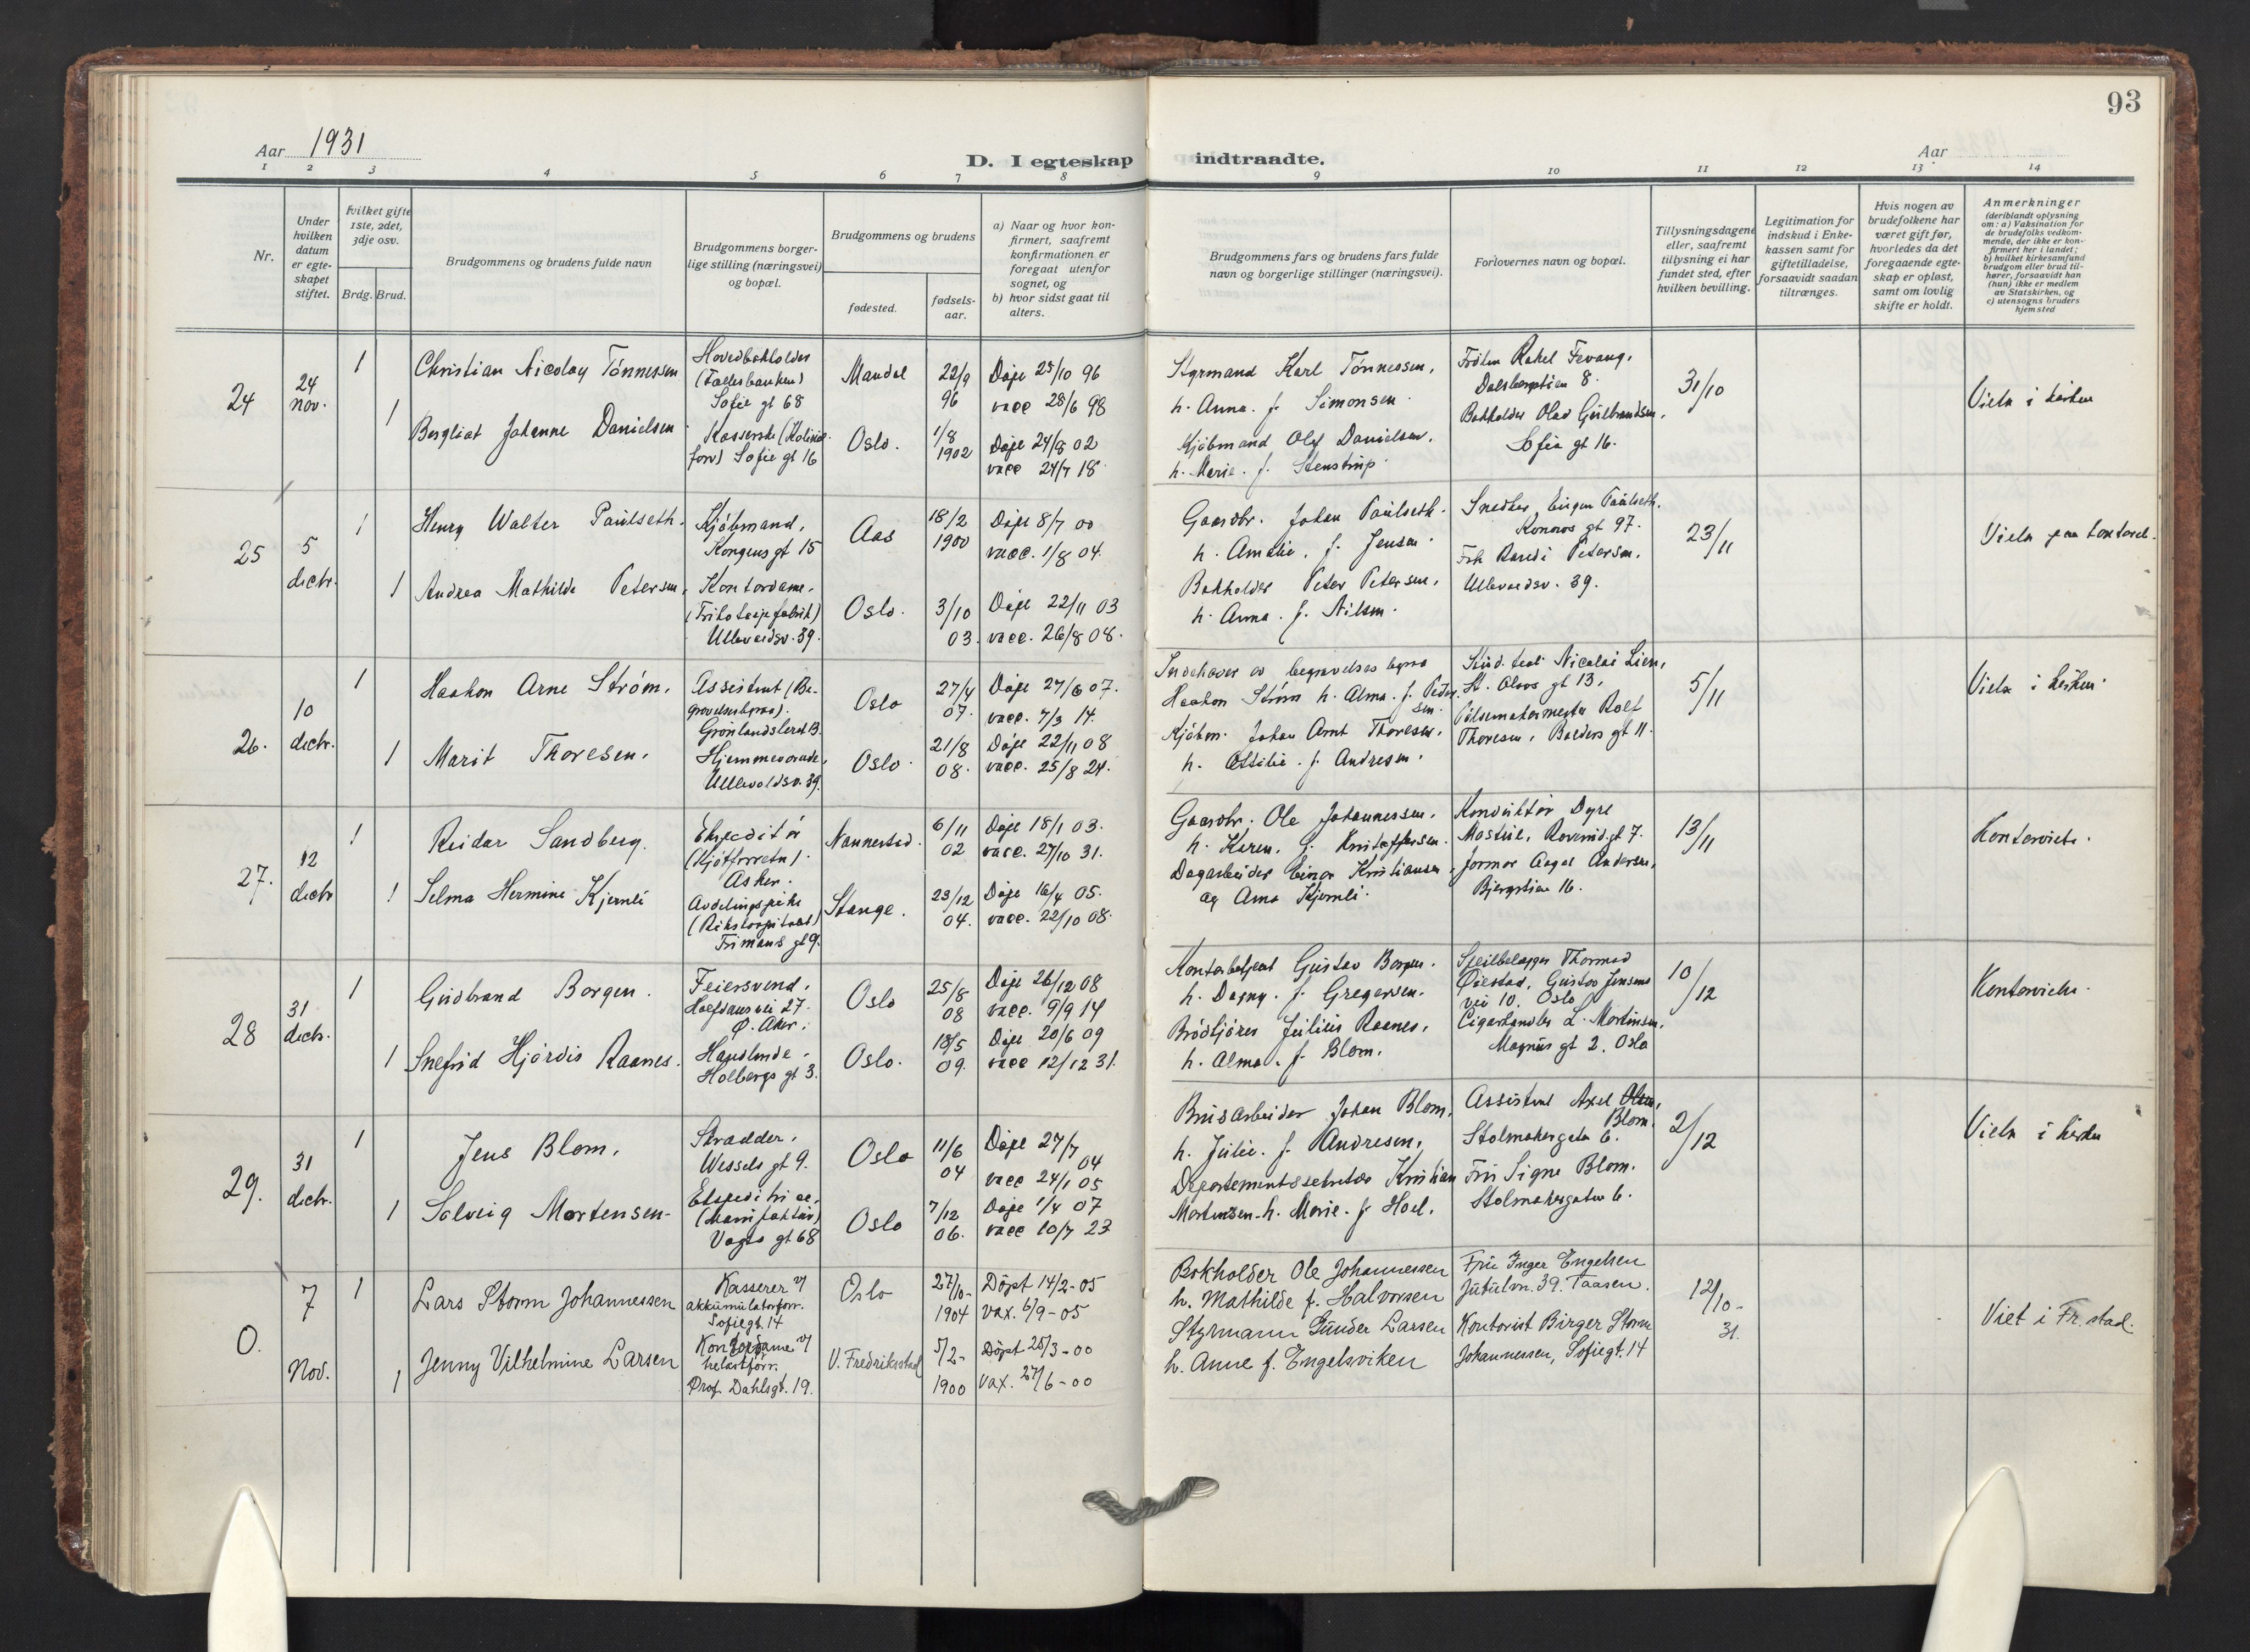 93
Aar 1931
D. I egteskap indtraadte.
Aar
1 2 3 4 5 6 7 8 9 10 11 12 13 14
Nr.
Under hvilken datum er egteskapet stiftet.
Hvilket gifte 1ste, 2det, 3dje osv.
Brdg. Brud.
Brudgommens og brudens fulde navn
Brudgommens borgerlige stilling (næringsvei) og bopæl.
Brudgommens og brudens
fødested.
fødselsaar.
a) Naar og hvor konfirmert, saafremt konfirmationen er foregaat utenfor sognet, og
b) hvor sidst gaat til alters.
Brudgommens fars og brudens fars fulde navn og borgerlige stillinger (næringsvei).
Forlovernes navn og bopæl.
Tillysningsdagene eller, saafremt tillysning ei har fundet sted, efter hvilken bevilling.
Legitimation for indskud i Enkekassen samt for giftetilladelse, forsaavidt saadan tiltrænges.
Hvis nogen av brudefolkene har været gift før, hvorledes da det foregaaende egteskap er opløst, samt om lovlig skifte er holdt.
Anmerkninger
(deriblandt oplysning om: a) Vaksination for de brudefolks vedkommende, der ikke er konfirmert her i landet; b) hvilket kirkesamfund brudgom eller brud tilhører, forsaavidt han (hun) ikke er medlem av Statskirken, og c) utensogns bruders hjemsted
24
24 nov.
1
Christian Nicolay Tönnessen
Hovedbokholder
(Fællesbanken)
Sofie gt 68
Mandal
22/9 96
Döpt 25/10 96
vacc 28/6 98
1
Bergliot Johanne Danielsen
Kasserske
Sofie gt 16
Oslo.
1/8 1902
Döpt 24/8 02
vacc 24/7 18
Styrmand Karl Tönnessen,
h. Anna. f. Simonsen
Kjöbmand Olaf Danielsen,
h. Marie. f. Stenstrup
Fröken Rakel Fevang,
Dalsbergstien 8.
Bokholder Olav Gulbrandsen,
Sofie gt 16.
31/10
Viets i kirken
25
5 decbr.
1
Henry Walter Paulseth.
Kjöbmand,
Kongens gt 15
Aas
18/2 1900
Döpt 8/7 00
vacc. 1/8 04.
1
Andrea Mathilde Petersen,
Kontordame,
Ullevaldsv. 39.
Oslo.
3/10 03.
Döpt 22/11 03
vacc. 26/8 08.
Gaardbr. Johan Paulseth.
h. Amalie, f. Jensen
Bokholder Peter Petersen,
h. Anna. f. Nilsen
Snedker Eugen Paulseth,
gt 97.
Frk Randi Petersen,
Ullevaldsv. 39.
23/11
Viets paa kontoret.
26.
10 decbr.
1
Haakon Arne Ström,
Assistent (Begravelsesbyraa).
Grönlandsleret 13.
Oslo
27/4 07.
Döpt 27/6 07.
vacc. 7/3 14.
1
Marit Thoresen,
Hjemmeværende,
Ullevoldsv. 39.
Oslo.
21/8 08.
Döpt 22/11 08
vacc. 25/8 24.
Indehaver av begravelsesbyraa
Haakon Ström h. Alma. f. Pedersen.
Kjöbm. Johan Arnt Thoresen,
h. Ottilie. f. Andresen.
Stud. Nicolai Lien,
St. Olavs gt 13,
Pölsemakermester Rolf
Thoresen, Balders gt 11.
5/11
Viets i kirken.
27.
12 decbr
1
Reidar Sandberg.
Ekspeditör
(Kjötforretn).
Asker.
Nannestad.
6/11 02
Döpt 18/1 03.
vacc. 27/10 31.
1
Selma Hermine Kjernli
Avdelingspike
(Rikshospitalet)
Frimans gt 9.
Stange.
23/12 04.
Döpt 16/4 05.
vacc. 22/10 08.
Gaardbr. Ole Johannessen,
h. Karen, f. Kristoffersen.
Dagarbeider Einar Kristiansen,
og Anna Kjernli.
Konduktör Dyre
gt 7.
Aagot Andersen,
Bjergstien 16.
13/11
Kontorviets.
28
31 decbr.
1
Gudbrand Borgen.
Feiersvend,
27.
Ø. Aker.
Oslo
25/8 08
Döpt 26/12 08
vacc. 9/9 14
1
Snefrid Hjördis Raanes.
Holbergs gt 3.
Oslo.
18/5 09.
Döpt 20/6 09
vacc 12/12 31.
Kontorbetjent Gustav Borgen.
h. Dagny. f. Gregersen.
Julius Raanes,
h. Alma. f. Blom.
Speilbelægger Thormod
Øiestad, Gustav Jensens
vei 10. Oslo
Cigarhandler L. Mortensen,
Magnus gt 2. Oslo
10/12
Kontorviets.
29.
31 decbr.
1
Jens Blom,
Skrædder,
Wessels gt 9.
Oslo
11/6 04
Döpt 27/7 04
vacc 24/1 05
1
Solveig Mortensen
Ekspeditrice,
(Manufaktur)
Vogts gt 68
Oslo
7/12 06.
Döpt 1/4 07
vacc 10/7 23
Brusarbeider Johan Blom,
h. Julie. f. Andresen,
Departementssekretær Kristian
Mortensen h. Marie. f. Hoel.
Assistent Axel
Blom,
Stolmakergata 6.
Fru Signe Blom.
Stolmakergaten 6.
2/12
Viets i kirken
0.
7 Nov.
1
Lars Storm Johannessen
Kasserer v/
akkumulatorforr.
Sofiegt. 14
Oslo
27/10- 1904
Döpt 14/2-05
vax. 6/9-05
1
Jenny Vilhelmine Larsen
Kontordame v/
Prof. Dahlsgt. 19.
V. Fredrikstad
5/2- 1900
Döpt 25/3-00
vax. 27/6-00
Bokholder Ole Johannessen
h. Mathilde f. Halvorsen
Styrmann Gunder Larsen
h. Anne f. Engelsviken
Fru Inger Engelsen
Jutulvn. 39. Taasen.
Kontorist Birger Storm
Johannessen, Sofiegt. 14
12/10-31.
Viet i Fr. stad.